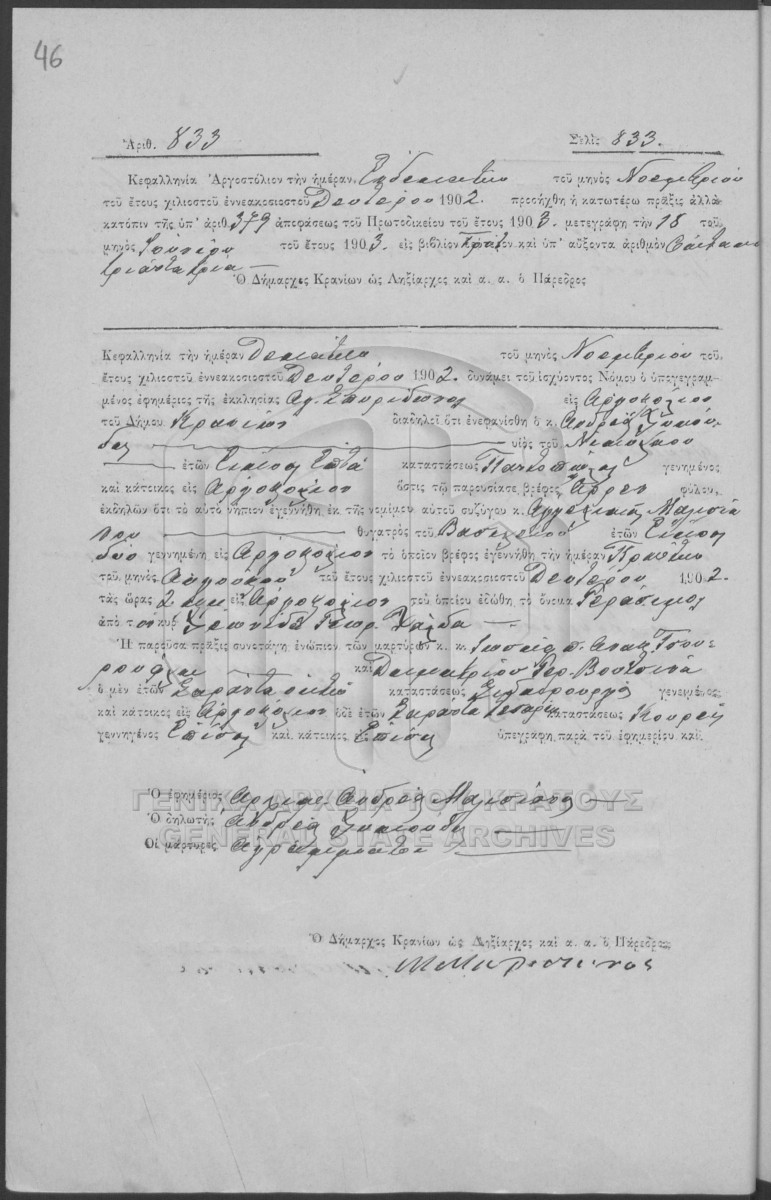 46
Ἀριθ. 833 Σελὶς 833.
Κεφαλληνία Ἀργοστόλιον τὴν ἡμέραν Ἑνδεκάτην τοῦ μηνὸς Νοεμβρίου
τοῦ ἔτους χιλιοστοῦ ἐννεακοσιοστοῦ Δευτέρου 1902. προσήχθη ἡ κατωτέρω πρᾶξις ἀλλὰ
κατόπιν τῆς ὑπ' ἀριθ. 379 ἀποφάσεως τοῦ Πρωτοδικείου τοῦ ἔτους 1903. μετεγράφη τὴν 18 τοῦ
μηνὸς Ἰουνίου τοῦ ἔτους 1903. εἰς βιβλίον Πρῶτον καὶ ὑπ' αὔξοντα ἀριθμὸν
τριάντα τρία —
Ὁ Δήμαρχος Κρανίων ὡς Ληξίαρχος καὶ α. α. ὁ Πάρεδρος
Κεφαλληνία τὴν ἡμέραν Δεκάτην τοῦ μηνὸς Νοεμβρίου τοῦ
ἔτους χιλιοστοῦ ἐννεακοσιοστοῦ Δευτέρου 1902. δυνάμει τοῦ ἰσχύοντος Νόμου ὁ ὑπογεγραμ-
μένος ἐφημέριος τῆς ἐκκλησίας Ἁγ. Σπυρίδωνος εἰς Ἀργοστόλιον
τοῦ Δήμου Κρανίων διαδηλοῖ ὅτι ἐνεφανίσθη ὁ κ. Ἀνδρέας
υἱὸς τοῦ Νικολάου
ἐτῶν Εἴκοσι Ἑπτὰ καταστάσεως Παντοπώλης γενημένος
καὶ κάτοικος εἰς Ἀργοστόλιον ὅστις τῷ παρουσίασε βρέφος Ἄρρεν φύλου,
ἐκδηλῶν ὅτι τὸ αὐτὸ νήπιον ἐγεννήθη ἐκ τῆς νομίμου αὐτοῦ συζύγου κ. Ἀγγελικῆς
θυγατρὸς τοῦ Βασιλείου ἐτῶν Εἴκοσι
δύο γεννημένη εἰς Ἀργοστόλιον τὸ ὁποῖον βρέφος ἐγεννήθη τὴν ἡμέραν Τρίτην
τοῦ μηνὸς Αὐγούστου τοῦ ἔτους χιλιοστοῦ ἐννεακοσιοστοῦ Δευτέρου 1902.
τὰς ὥρας 2 εἰς Ἀργοστόλιον τοῦ ὁποίου ἐδώθη τὸ ὄνομα Γεράσιμος
ἀπὸ τὸν κυρ Λεωνίδα Γεωρ. —
Ἡ παροῦσα πρᾶξις συνετάγη ἐνώπιον τῶν μαρτύρων κ. κ.
καὶ Δημητρίου Γερ. Βουτσινᾶ
ὁ μὲν ἐτῶν Σαράντα ὀκτὼ καταστάσεως Ξυλουργὸς γενειμένος
καὶ κάτοικος εἰς Ἀργοστόλιον ὁ δὲ ἐτῶν Σαράντα τεσσάρων καταστάσεως Κουρεὺς
γεννηγένος Ἐπίσης καὶ κάτοικος Ἐπίσης ὑπεγράφη παρὰ τοῦ ἐφημερίου καὶ
Ὁ ἐφημέριος Ἀρχιμ. Ἀνδρέας
Ὁ δηλωτὴς Ἀνδρέας
Οἱ μάρτυρες Ἀγράμματοι
ΓΕΝΙΚΑ ΑΡΧΕΙΑ ΤΟΥ ΚΡΑΤΟΥΣ
GENERAL STATE ARCHIVES
Ὁ Δήμαρχος Κρανίων ὡς Ληξίαρχος καὶ α. α. ὁ Πάρεδρος